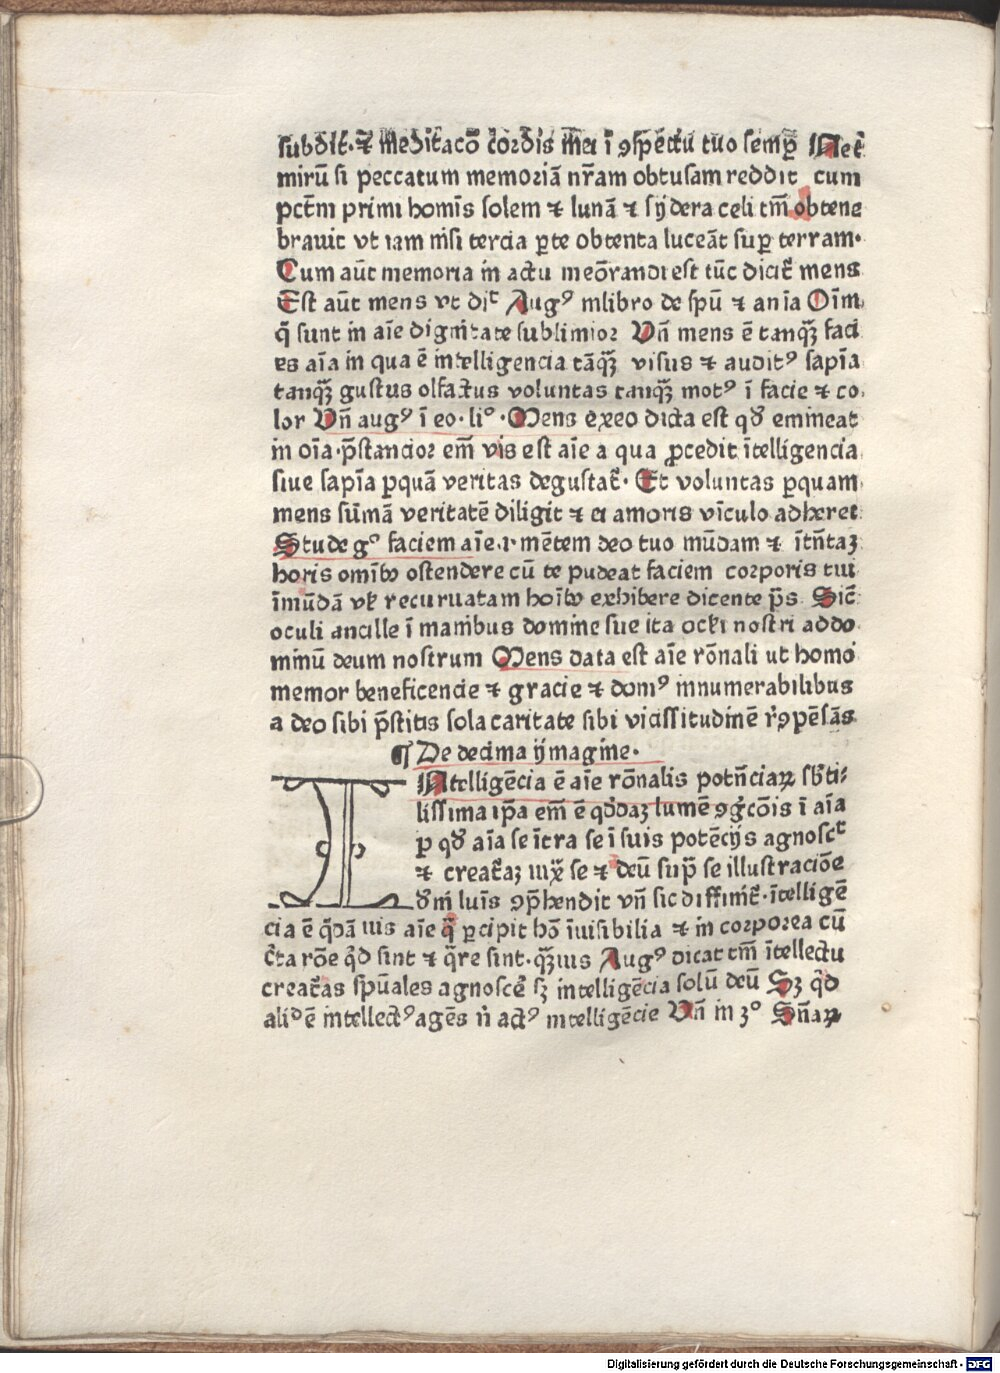 subdit̄·⁊ meditacō cordis mei ī ꝯspēctu tuo semꝑ Nec
mirū si peccatum memoriā nr̄am obtusam reddit cum
pctm̄ primi homīs solem ⁊ lunā ⁊ sydera celi tm̄ obtene
brauit vt iam nisi tercia ꝑte obtenta luceāt suꝑ terram·
Cum aūt memoria in actu meōrandi est tūc dicit̄ mens
Est aūt mens vt dic̄ Augꝰ inlibro de spū ⁊ anīa Oīm
q̄ sunt in aīe dignitate sublimior Vn̄ mens ē tanqꝫ faci
es aīa in qua ē intelligencia tāqꝫ visus ⁊ auditꝰ sapīa
tanqꝫ gustus olfactus voluntas tanqꝫ motꝰ ī facie ⁊ co
lor Vn̄ augꝰ ī eo·liº·Mens exeo dicta est qď emineat
in oīa·p̄stancior em̄ vis est aīe a qua ꝓcedit ītelligencia
siue sapīa ꝑquā veritas degustat̄· Et voluntas ꝑquam
mens sūmā veritatē diligit ⁊ ei amoris vīculo adheret
Stude gº faciem aīe·i·mētem deo tuo mūdam ⁊ ītn̄taꝫ
horis omībꝫ ostendere cū te pudeat faciem corporis tui
īmūdā vł recuruatam hoībꝫ exhibere dicente p̄s Sic̄
oculi ancille ī manibus domine sue ita ocłi nostri addo
minū deum nostrum Mens data est aīe rōnali ut homo
memor beneficencie ⁊ gracie ⁊ domꝰ innumerabilibus
a deo sibi p̄stitis sola caritate sibi vicissitudinē rꝯpēsās
¶ De decima ymagine·
INtelligēcia ē aīe rōnalis potn̄ciaꝝ sb̄ti
lissima ip̄a em̄ ē qd̄daꝫ lumē ꝯgc̄ōis ī aīa
ꝑ qď aīa se īcra se ī suis potēcijs agnosct̄
⁊ creat̄aꝫ iux̄ se ⁊ deū sup̄ se illustraciōe
dini luīs ꝯp̄hendit vn̄ sic diffinit̄·ītelligē
cia ē q̄dā uis aīe q̄ ꝑcipit hō īuisibilia ⁊ in corporea cū
c̄ta rōe q̄d sint ⁊ q̄re sint·qꝫuis Augꝰ dicat tm̄ ītellectu
creat̄as spūales agnosce sꝫ intelligēcia solū deū Sꝫ q̄d
aliď ē intellectꝰ agēs n̄ actꝰ intelligēcie Vn̄ in 3º Sn̄aꝝ
Digitalisierung gefördert durch die Deutsche Forschungsgemeinschaft - DFG